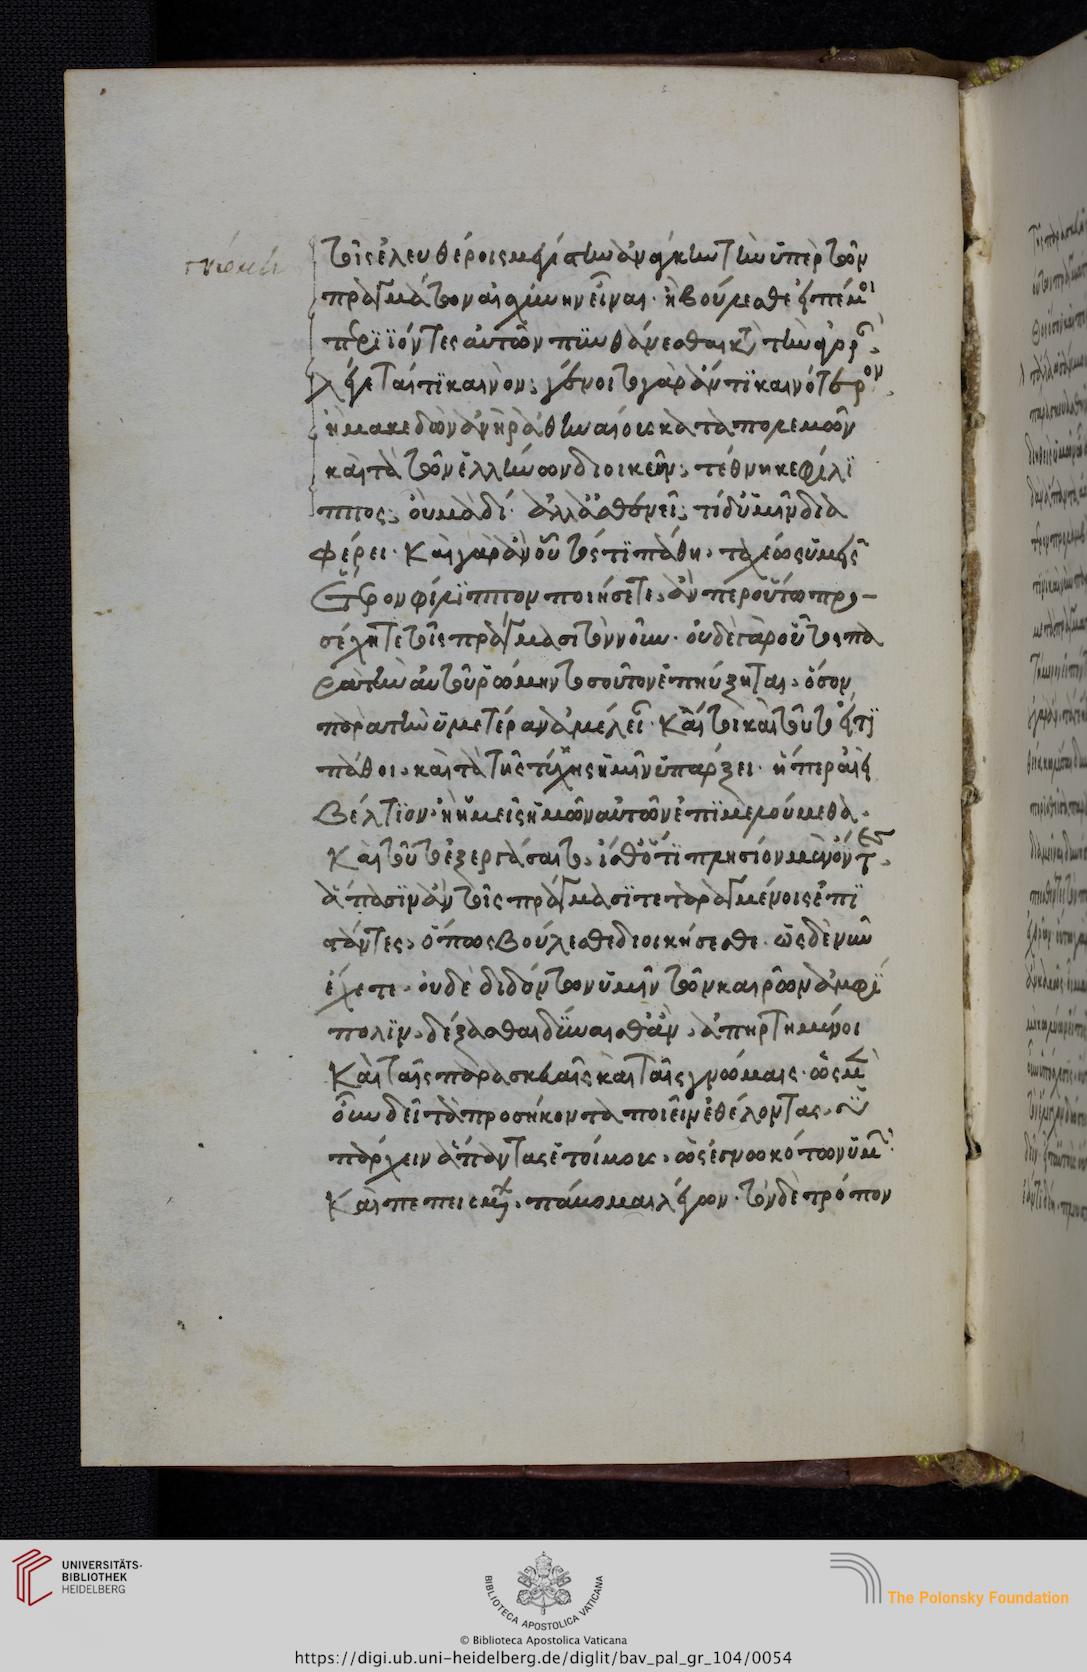 γνώμη
τοῖς ἐλευθέροις μεγίστην ἀνάγκην τὴν ὑπὲρ τῶν
πραγμάτων αἰσχύνην εἶναι. ἢ βούλεσθε εἰπέ μοι
περιϊόντες αὐτῶν πυνθάνεσθαι κατὰ τὴν ἀγοράν.
λέγεταί τι καινόν; γένοιτο γὰρ ἄν τι καινότερον
ἢ μακεδὼν ἀνὴρ ἀθηναίους καταπολεμῶν
καὶ τὰ τῶν ἑλλήνων διοικῶν; τέθνηκε φίλι
ππος; οὐ μὰ δί. ἀλλ' ἀσθενεῖ; τί δ' ὑμῖν δια
φέρει. καὶ γὰρ ἂν οὗτός τι πάθη. ταχέως ὑμεῖς
ἕτερον φίλιππον ποιήσετε. ἄν περ οὕτω προ
σέχητε τοῖς πράγμασι τὸν νοῦν. οὐδὲ γὰρ οὗτος πα
ρὰ τὴν αὑτοῦ ῥώμην τοσοῦτον ἐπηύξηται. ὅσον
παρὰ τὴν ὑμετέραν ἀμέλειαν. καίτοι καὶ τοῦτο εἴ τι
πάθοι. καὶ τὰ τῆς τύχης ἡμῖν ὑπάρξει. ἥπερ ἀεὶ
βέλτιον ἢ ἡμεῖς ἡμῶν αὐτῶν ἐπιμελούμεθα.
καὶ τοῦτ' ἐξεργάσαιτο. ἴσθ' ὅτι πλησίον μὲν ὄντες.
ἅπασιν ἂν τοῖς πράγμασι τεταραγμένοις ἐπι
στάντες. ὅπως βούλεσθε διοικήσεσθε. ὡς δὲ νῦν
ἔχετε. οὐδὲ διδόντων ὑμῖν τῶν καιρῶν ἀμφί
πολιν. δέξασθαι δύναισθ' ἄν. ἀπηρτημένοι
καὶ ταῖς παρασκευαῖς καὶ ταῖς γνώμαις. ὡς μὲν
οὖν δεῖ τὰ προσήκοντα ποιεῖν ἐθέλοντας. ὑ
πάρχειν ἅπαντας ἑτοίμους. ὡς ἐγνωκότων ὑμῶν
καὶ πεπεισμένων. παύομαι λέγων. τὸν δὲ τρόπον
UNIVERSITÄTS-
BIBLIOTHEK
HEIDELBERG
BIBLIOTECA APOSTOLICA VATICANA
The Polonsky Foundation
© Biblioteca Apostolica Vaticana
https://digi.ub.uni-heidelberg.de/diglit/bav_pal_gr_104/0054